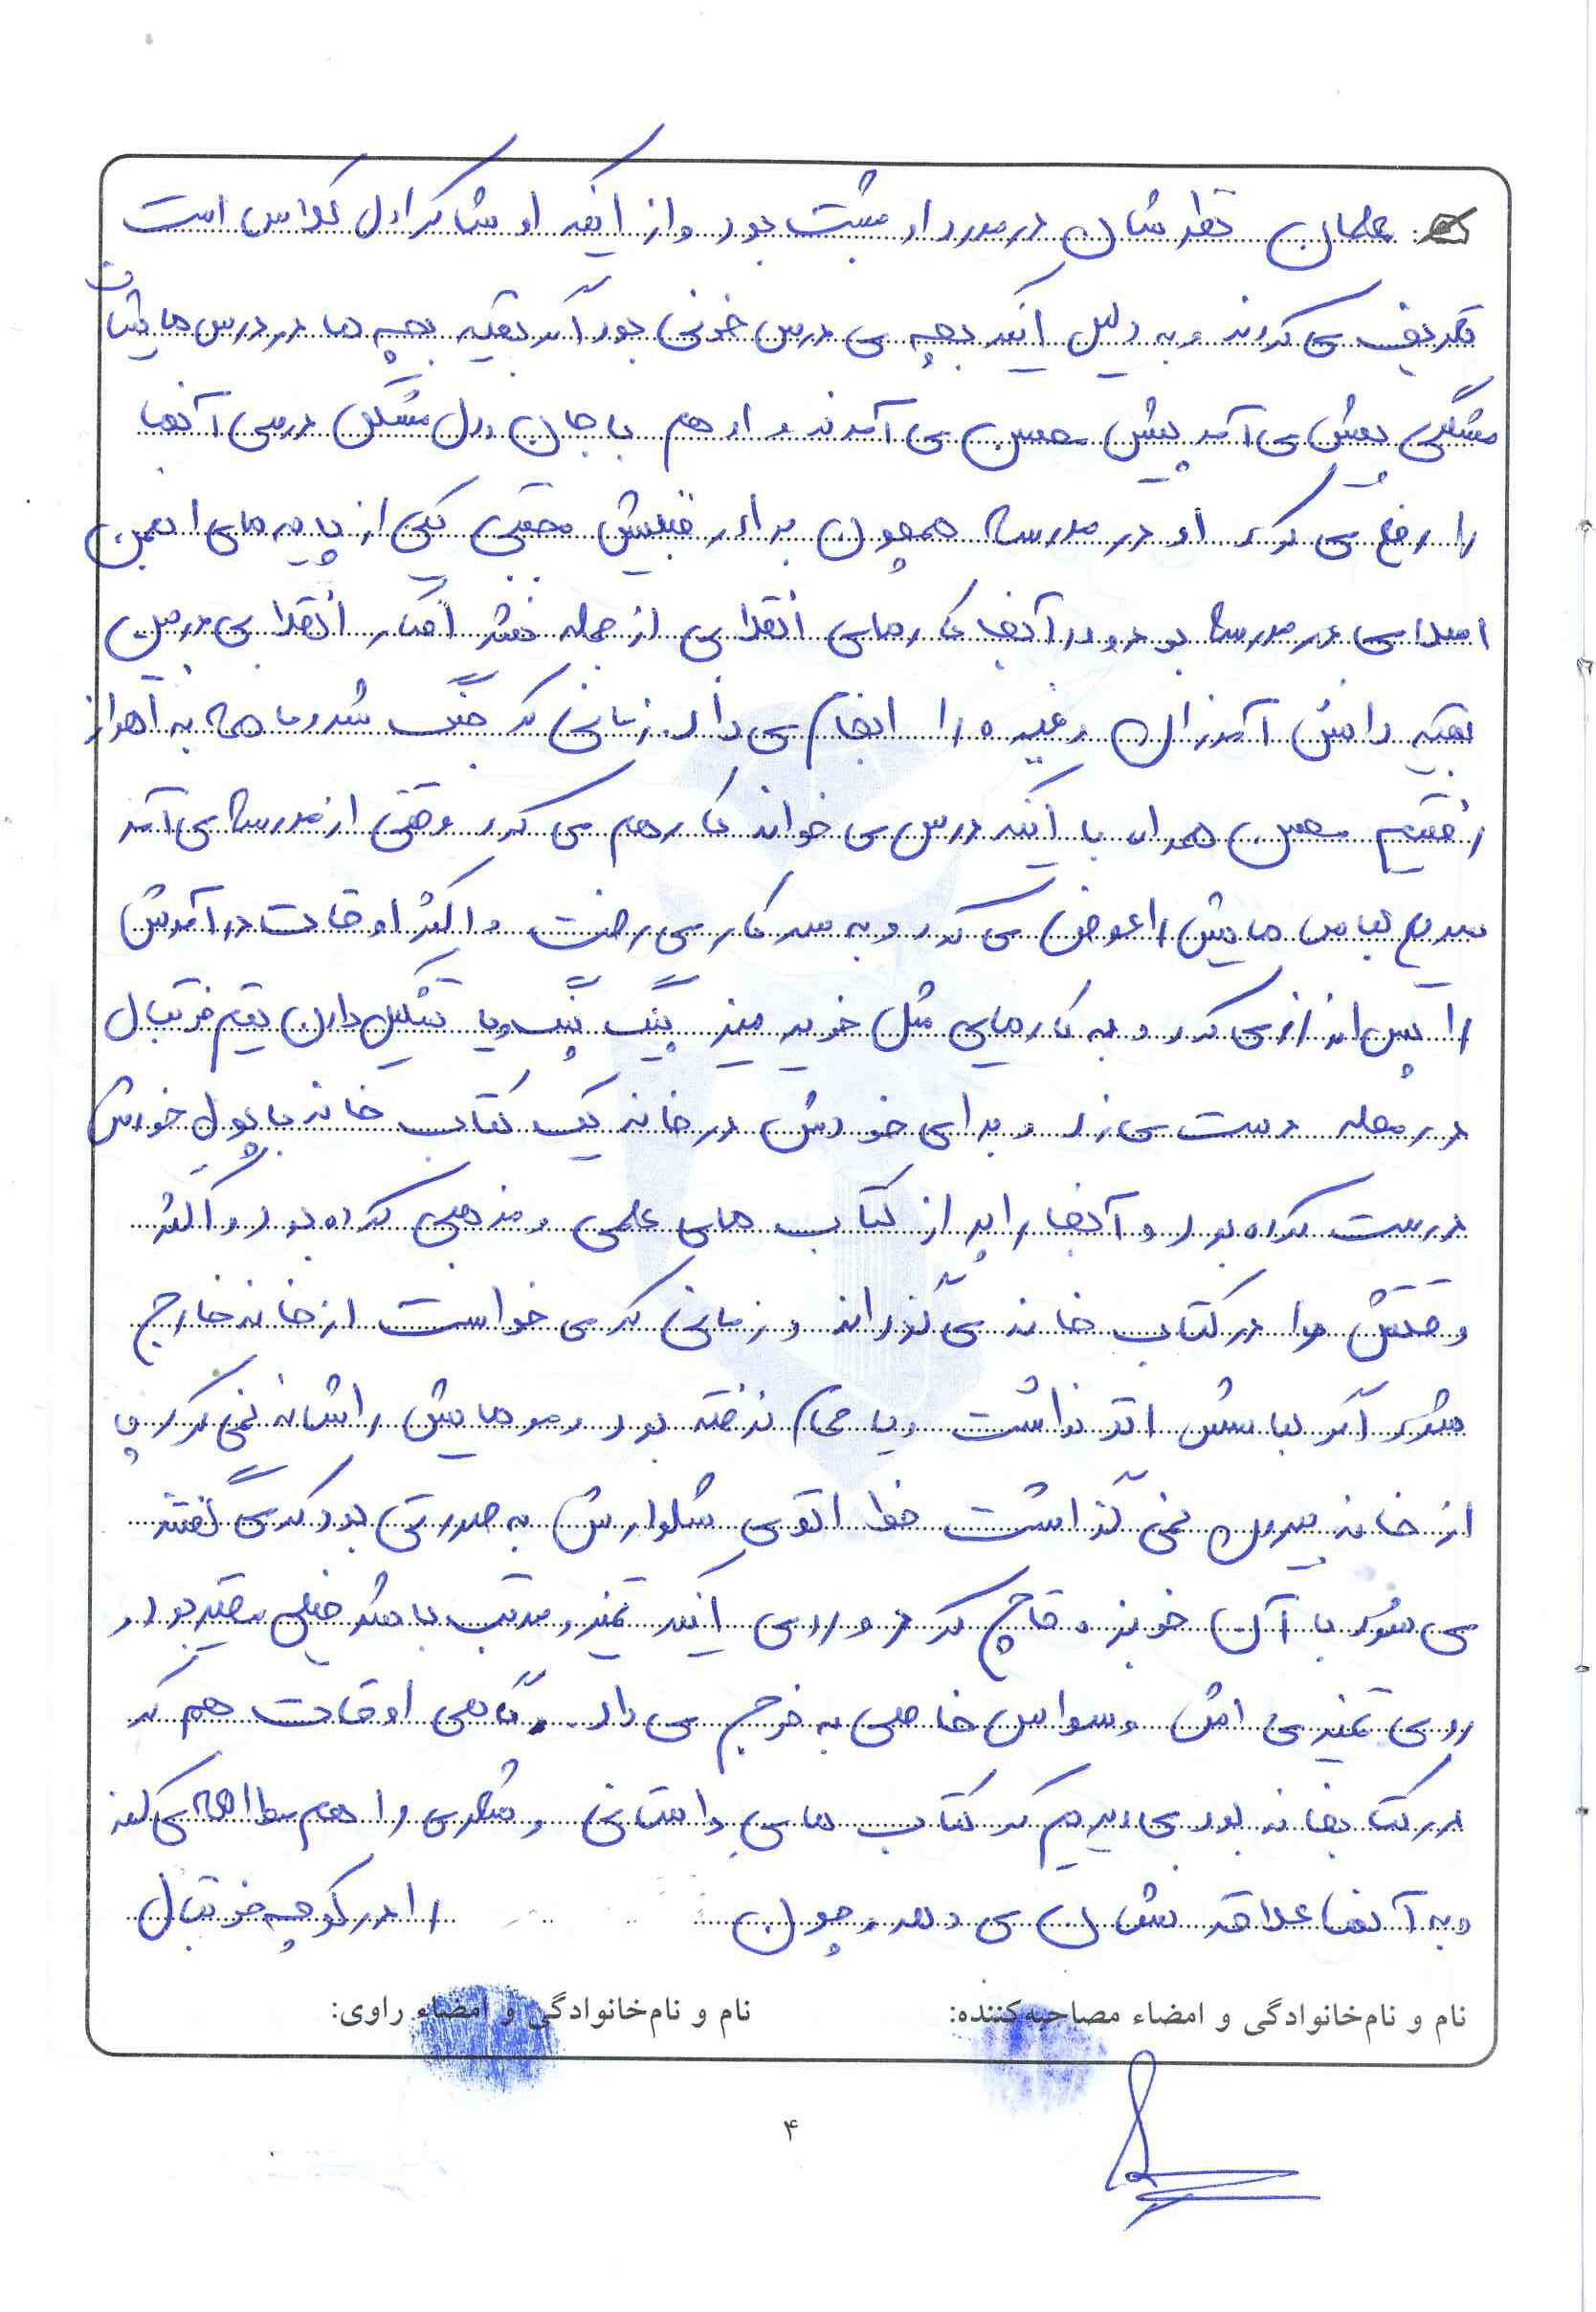 علمان نظرشان در مورد او مثبت بود و از اینکه او شاگر اول کلاس است
تعریف می کردند و به دلیل اینکه بچه ی درس خونی بود اگر بقیه بچه ها در درس هایشان
مشکلی پیش می آمد پیش حسن می آمدند و او هم با جان و دل مشکل درسی آنها
را رفع می کرد او در مدرسه همچون برادر قبلیش مجتبی یکی از پایه های انجمن
اسلامی در مدرسه بود و در آنجا کارهای انقلابی از جمله نشر افکار انقلابی در بین
بقیه دانش آموزان و غیره را انجام می داد. زمانی که جنگ شد و ما به اهواز
رفتیم حسن همراه با اینکه درس می خواند کار هم می کرد وقتی از مدرسه می آمد
سریع لباس هایش را عوض می کرد و به سر کار می رفت و اکثر اوقات درآمدش
را پس اندازی کرد و به کارهایی مثل خرید میز پینگ پنگ و یا تشکیل دادن تیم فوتبال
در محله دست می زد و برای خودش در خانه یک کتاب خانه با پول خودش
درست کرده بود و آنجا را پر از کتاب های علمی و مذهبی کرده بود و اکثر
وقتش را در کتاب خانه می گذراند و زمانی که می خواست از خانه خارج
شود اگر لباسش اتو نداشت و یا حمام نرفته بود و موهایش را شانه نمی کرد پا
از خانه بیرون نمی گذاشت خط اتوی شلوارش به صورتی بود که می گفتند
می شود با آن خربزه قاچ کرد و روی اینکه تمیز و مرتب باشد خیلی مقید بود و
روی تمیزی اش وسواس خاصی به خرج می داد. گاهی اوقات هم که
در کتابخانه بود می دیدیم که کتاب های داستانی و شعری را هم مطالعه می کند
و به آنها علاقه نشان می دهد و چون را در کوچه فوتبال
نام و نام‌خانوادگی و امضاء مصاحبه‌کننده: نام و نام‌خانوادگی و امضاء راوی:
۴